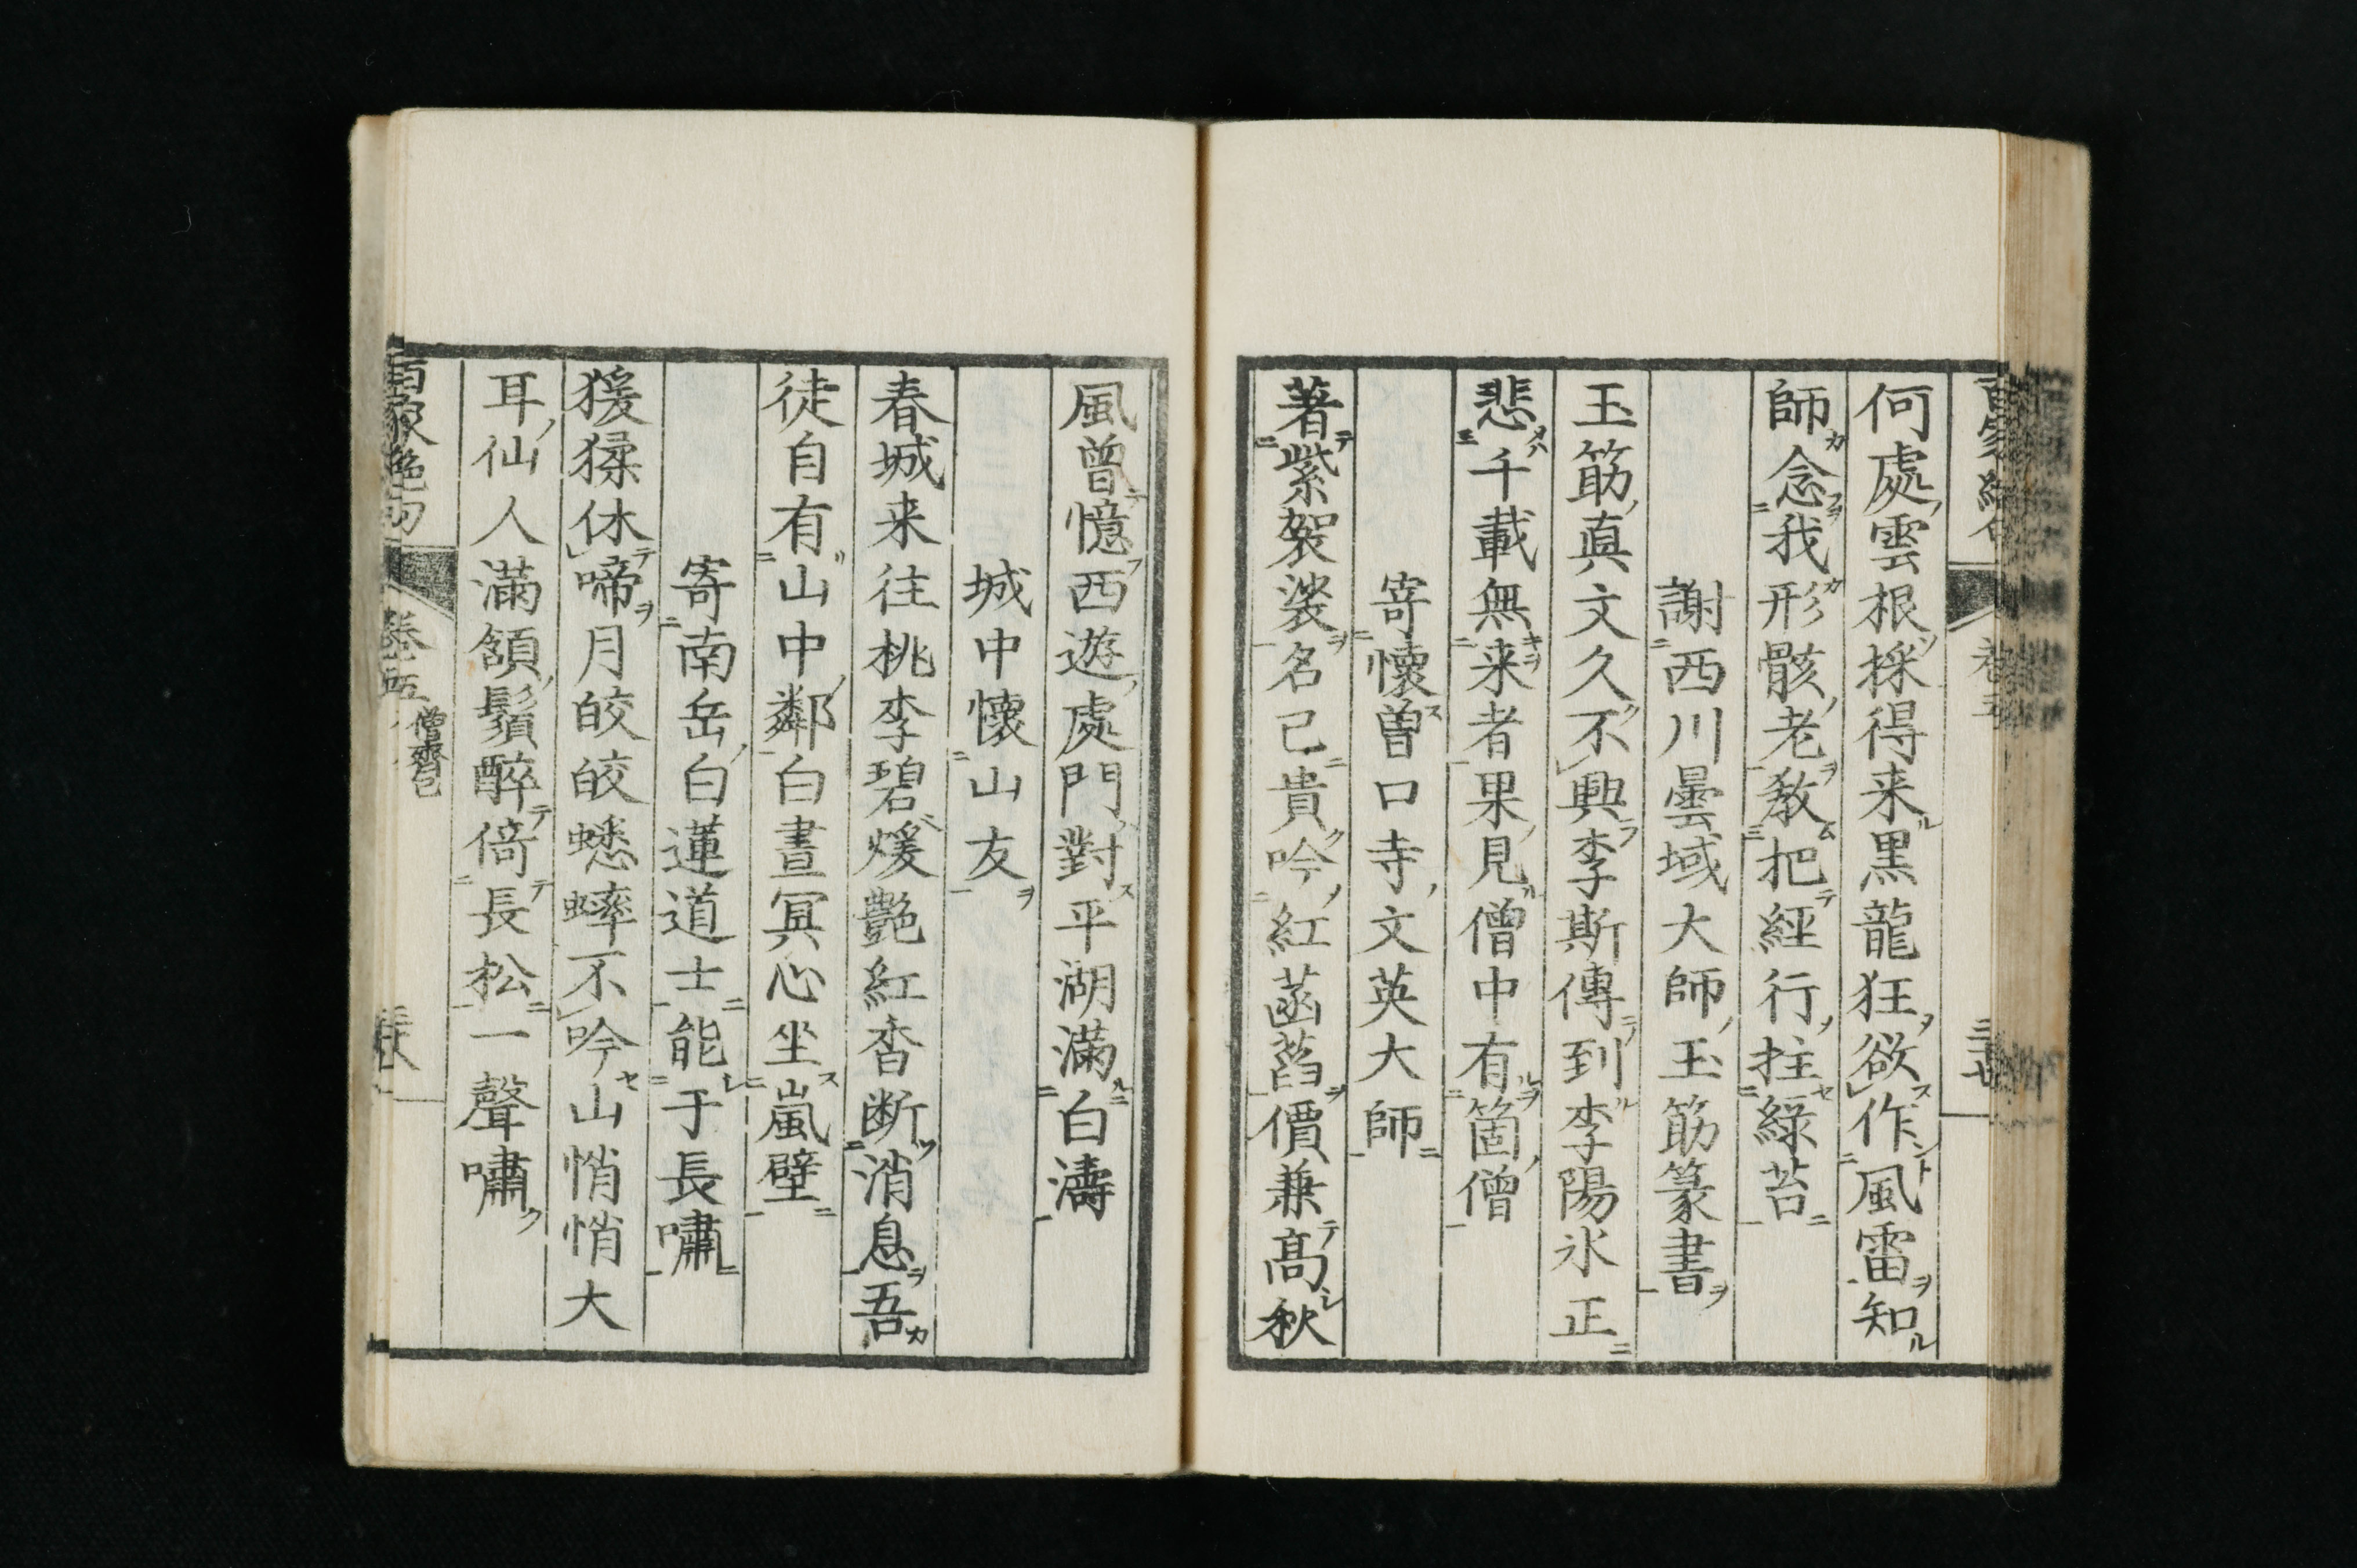 何處雲根採得来黒龍狂欲作風雷知
師念我形骸老教把經行拄綠苔
謝西川曇域大師玉筋篆書
玉筋真文久不興李斯傳到李陽氷正
悲千載無来者果見僧中有箇僧
寄懷曽口寺文英大師
著紫袈裟名已貴吟紅菡萏價兼髙秋
風曽憶西遊處門對平湖滿白濤
城中懷山友
春城来往桃李碧煖艷紅杳断消息吾
徒自有山中鄰白晝冥心坐嵐壁
寄南岳白蓮道士能于長嘯
猨猱休啼月皎皎蟋蟀不吟山悄悄大
耳仙人滿頷鬚醉倚長松一聲嘯
百家絶句 卷五 僧齊己